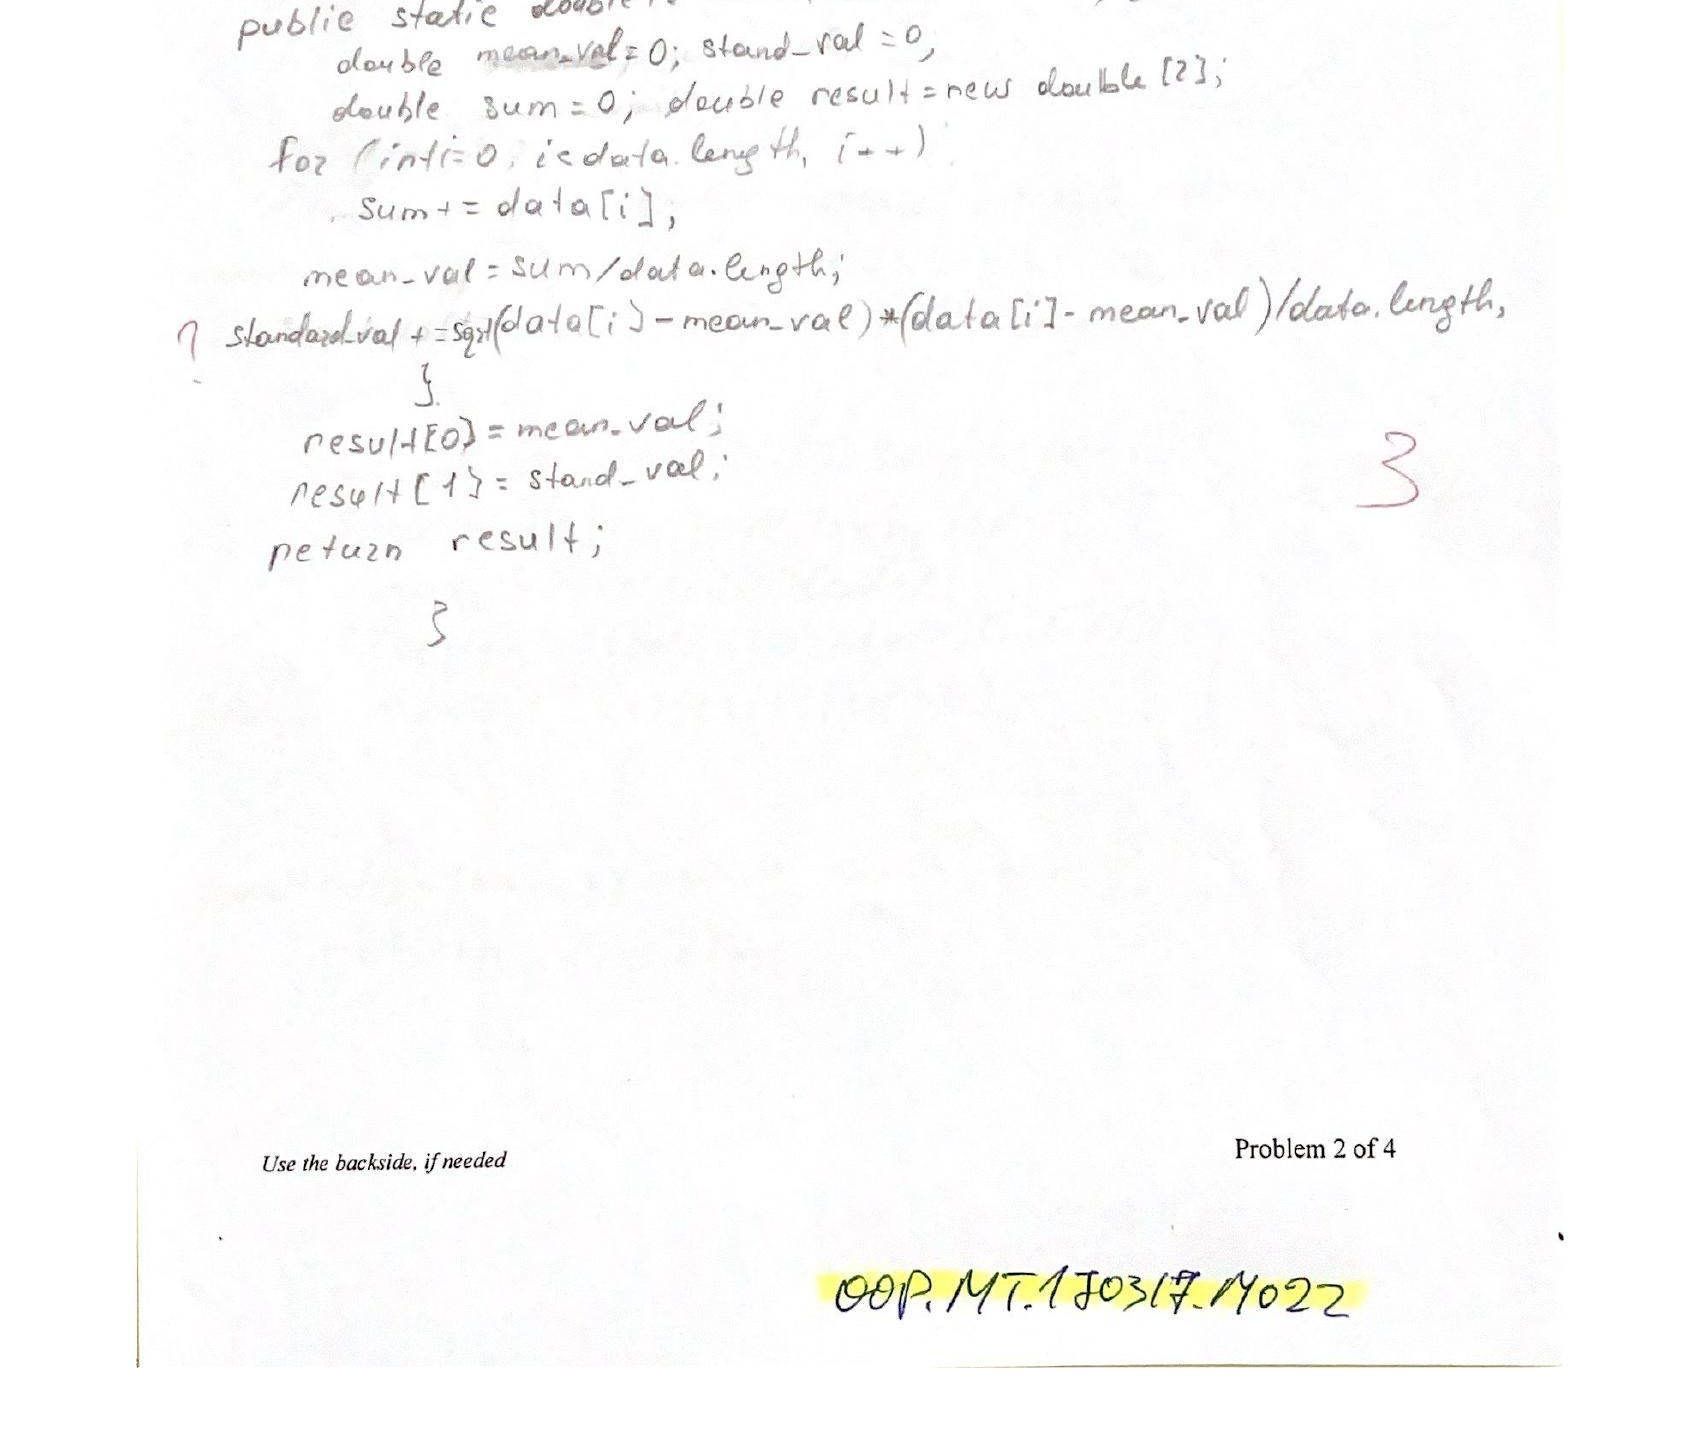 public static double
double mean_val=0; stand_val=0,
double sum=0; double result=new double [2];
for (int i=0, i<data.length, i++)
sum+=data[i],
mean_val=sum/data.length;
? standard_val +=sqrt(data[i]-mean_val)*(data[i]-mean_val)/data.length,
}
result[0]=mean_val;
3
result[1}=stand_val;
return result;
}
Problem 2 of 4
Use the backside, if needed